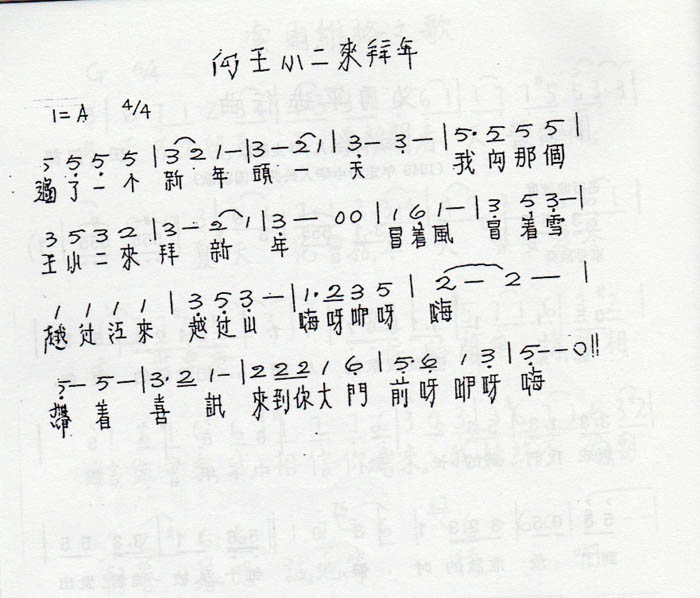 向王小二來拜年
1=A 4/4
5 5 5 5 | 3 2 1 — | 3 — 2 1 | 3 — 3 — | 5· 5 5 5 |
過了一个 新年頭 天 我向那個
3 5 3 2 | 3 — 2 1 | 3 — 0 0 | 1 6 1 — | 3 5 3 — |
王小二來 拜新年 冒着風 冒着雪
1 1 1 1 | 3 5 3 — | 1· 2 3 5 | 2 — 2 — |
越过江來 越过山 嗨呀咿呀 嗨
5 — 5 — | 3· 2 1 — | 2 2 2 1 6 | 5 6 1 3 | 5 — — 0 ||
帶着喜訊 來到你大門前呀咿呀嗨